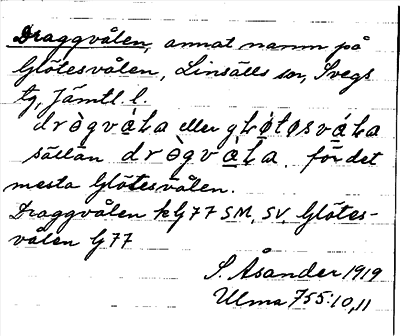 Draggvålen, annat namn på
Glötesvålen, Linsälls sn, Svegs
tg, Jämtl. l.
drògvàLa eller gLøtøsváLa
sällan drògvàLa. för det
mesta Glötesvålen.
Draggvålen k G77 SM, SV, Glötes-
vålen G77
S. Åsander 1919
Ulma 755:10,11